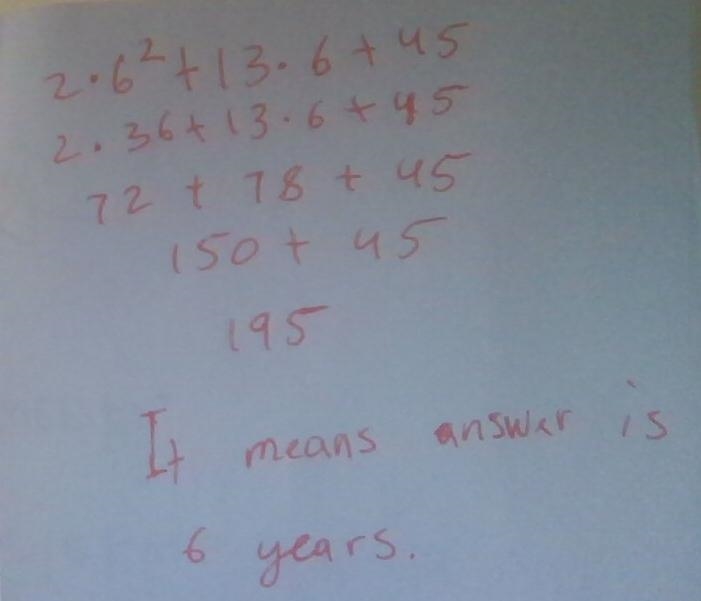 2·6²+13·6+45
2·36+13·6+45
72+78+45
150+45
195
It means answer is
6 years.